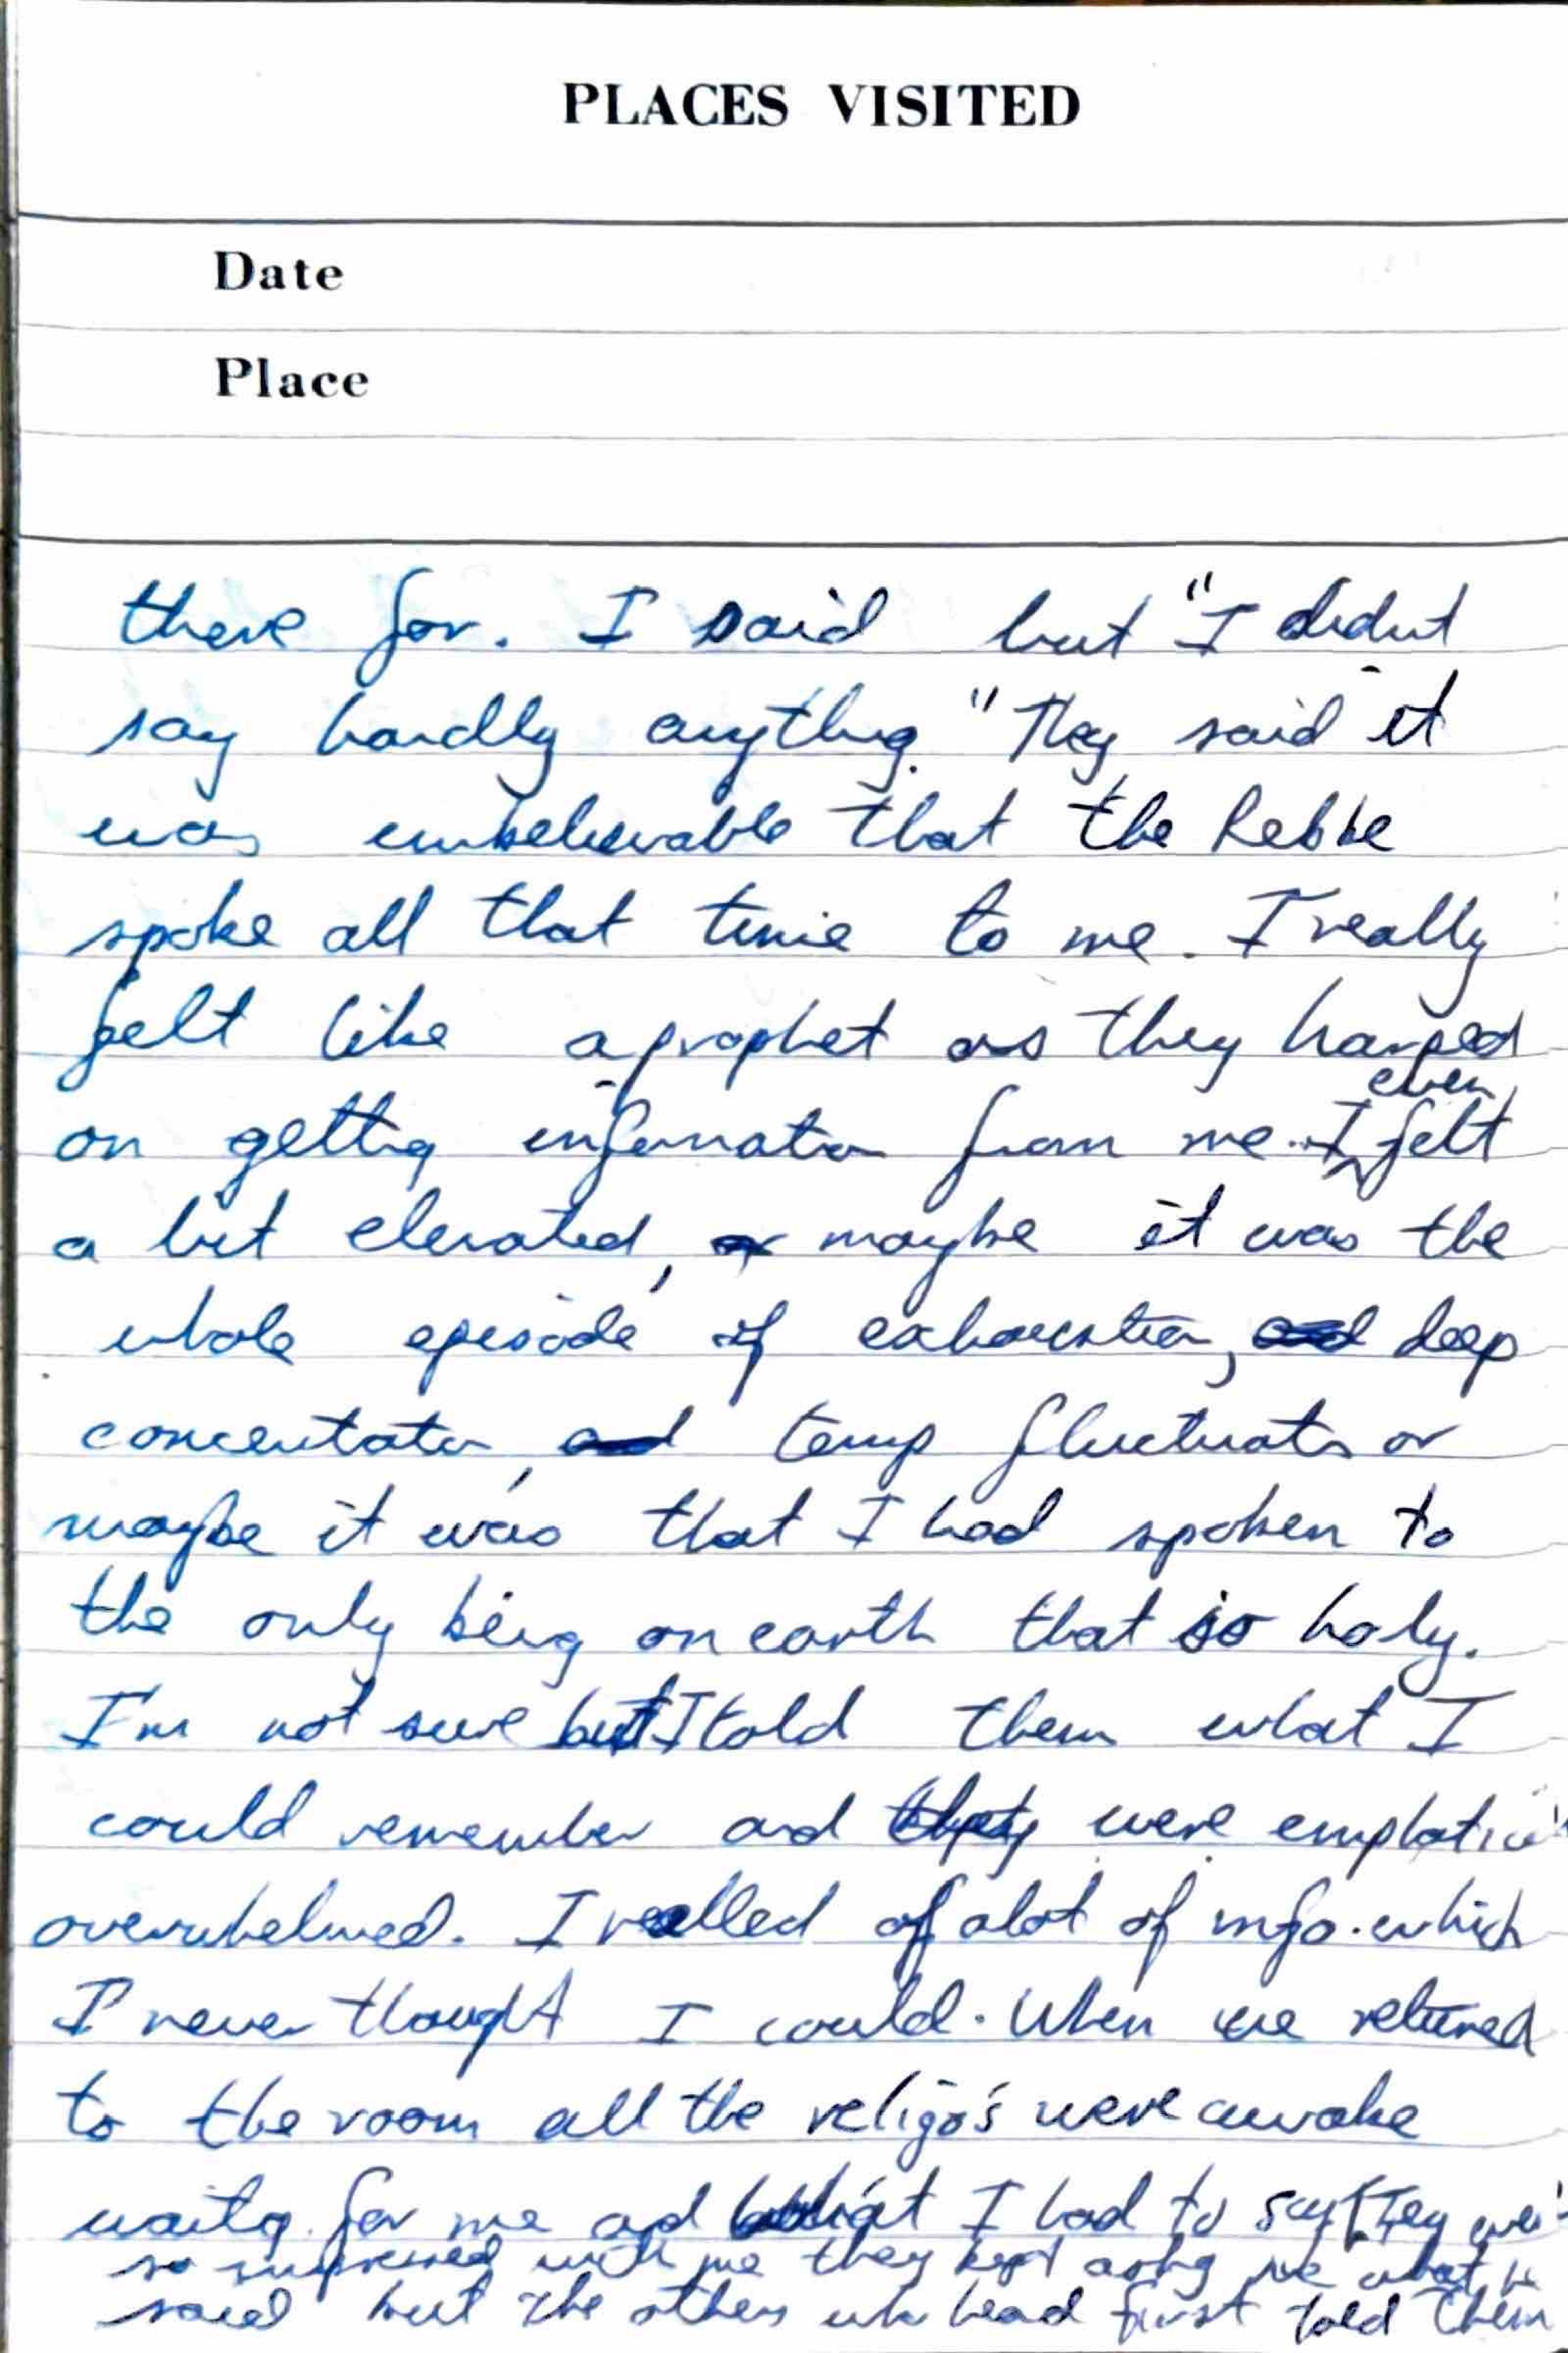 PLACES VISITED
Date
Place
there for. I said but "I didnt
say hardly anything." They said it
was unbelievable that the Rebbe
spoke all that time to me. I really
felt like a prophet as they harped
on getting information from me. I even felt
a bit elevated, maybe it was the
whole episode of exhaustion, deep
concentration, temp fluctuations or
maybe it was that I had spoken to
the only being on earth that is holy.
I'm not sure but I told them what I
could remember and they were
overwhelmed. I recalled of alot of info. which
I never thought I could. When we returned
to the room all the religo's were awake
waiting for me and what I had to say. They
so impressed with me they kept asking me what he
said but the others who head first told them